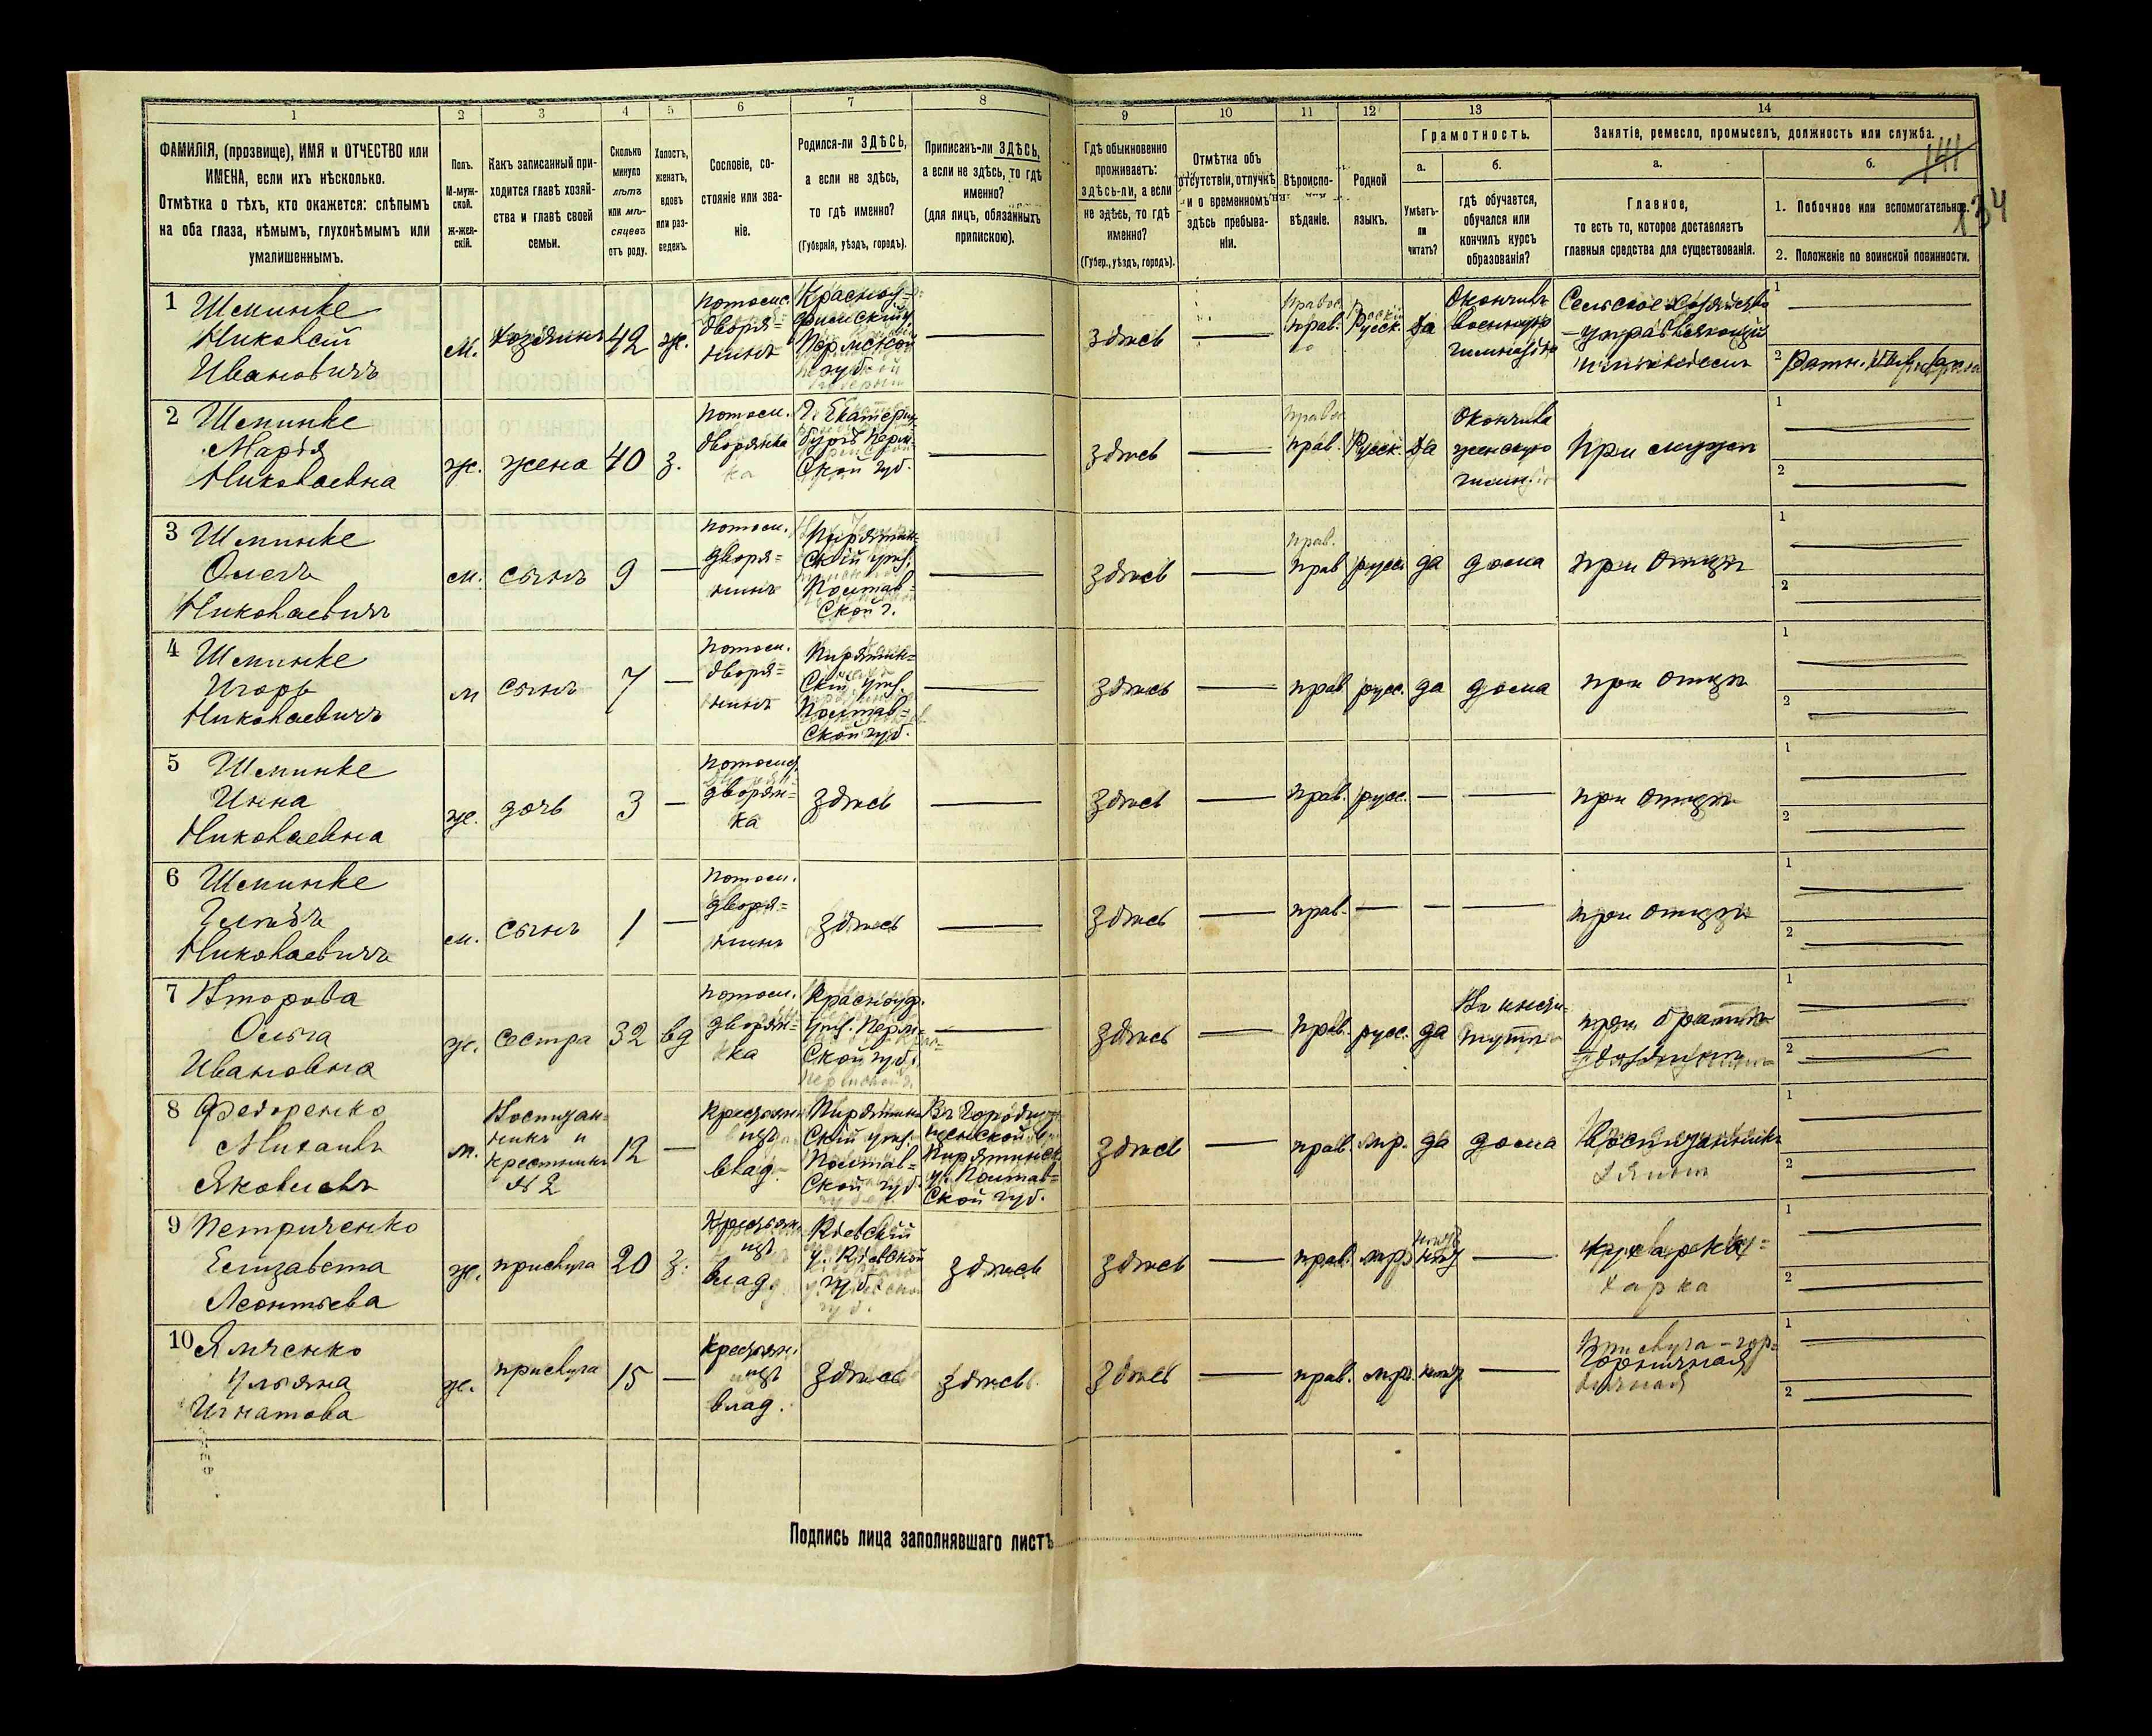 1 2 3 4 5 6 7 8 9 10 11 12 13 14
ФАМИЛІЯ, (прозвище), ИМЯ и ОТЧЕСТВО или
ИМЕНА, если ихъ нѣсколько.
Отмѣтка о тѣхъ, кто окажется: слѣпымъ
на оба глаза, нѣмымъ, глухонѣмымъ или
умалишеннымъ.
Полъ.
М-муж-
ской.
Ж-жен-
скій.
Какъ записанный при-
ходится главѣ хозяй-
ства и главѣ своей
семьи.
Сколько
минуло
лѣтъ
или мѣ-
сяцевъ
отъ роду.
Холостъ,
женатъ,
вдовъ
или раз-
веденъ.
Сословіе, со-
стояніе или зва-
ніе.
Родился-ли ЗДѢСЬ,
а если не здѣсь,
то гдѣ именно?
(Губернія, уѣздъ, городъ).
Приписанъ-ли ЗДѢСЬ,
а если не здѣсь, то гдѣ
именно?
(для лицъ, обязанныхъ
припискою).
Гдѣ обыкновенно
проживаетъ:
здѣсь-ли, а если
не здѣсь, то гдѣ
именно?
(Губер., уѣздъ, городъ).
Отмѣтка объ
отсутствіи, отлучкѣ
и о временномъ
здѣсь пребыва-
ніи.
Вѣроиспо-
вѣданіе.
Родной
языкъ.
Грамотность.
а.
Умѣетъ-
ли
читать?
б.
гдѣ обучается,
обучался или
кончилъ курсъ
образованія?
Занятіе, ремесло, промыселъ, должность или служба.
а.
Главное,
то есть то, которое доставляетъ
главныя средства для существованія.
б.
1. Побочное или вспомогательное.
2. Положеніе по воинской повинности.
141
134
1
Николай
Ивановичъ
м.
хозяинъ
42
ж.
потомс.
дворя=
нинъ
Красноу-
фимскій у
Пермской
губ.
здѣсь
прав.
Русск.
да
Окончилъ
военную
гимназію
Сельское хозяйство
-управляющій
имѣніемъ
1
2
2
Марія
Николаевна
ж.
жена
40
з.
потом.
дворянка
Г. Екатерин
бургъ Перм-
ской губ.
здѣсь
прав.
Русск.
да
Окончила
женскую
гимн.
при мужѣ
1
2
3
Олегъ
Николаевичъ
м.
сынъ
9
потом.
дворя=
нинъ
Пирятин-
скій уѣз.
Полтав-
ской г.
здѣсь
прав
русск
да
дома
при отцѣ
1
2
4
Игорь
Николаевичъ
м
сынъ
7
потом.
дворя=
нинъ
Пирятин=
скій уѣз.
Полтав=
ской губ.
здѣсь
прав
русс.
да
дома
при отцѣ
1
2
5
Инна
Николаевна
ж.
дочь
3
дворян=
ка
здѣсь
здѣсь
прав.
русс.
при отцѣ
1
2
6
Глѣбъ
Николаевичъ
м.
сынъ
1
потом.
дворя=
нинъ
здѣсь
здѣсь
прав.
при отцѣ
1
2
7
Ольга
Ивановна
ж.
сестра
32
вд
потом.
дворян=
ка
Красноуф.
уѣз. Перм-
ской губ.
здѣсь
прав.
русс.
да
Въ инсти-
тутѣ
при братѣ
1
2
8 Федоренко
Михаилъ
Яковлевъ
м.
Воспитан-
никъ и
крестникъ
№ 2
12
влад.
Пирятин
скій уѣз.
Полтав=
ской губ.
Пирятинск.
у. Полтав=
ской губ.
здѣсь
прав.
мр.
да
дома
Воспитанникъ
1
2
9 Петриченко
Елизавета
Леонтьева
ж.
прислуга
20
з.
влад.
Кіевскій
у. Кіевской
губ.
здѣсь
здѣсь
прав.
мр.
нѣтъ
1
2
10 Ямченко
Ульяна
Игнатова
ж.
прислуга
15
влад.
здѣсь
здѣсь
здѣсь
прав.
мр.
нѣтъ
Прислуга - гор=
горничная
1
2
Подпись лица заполнявшаго листъ